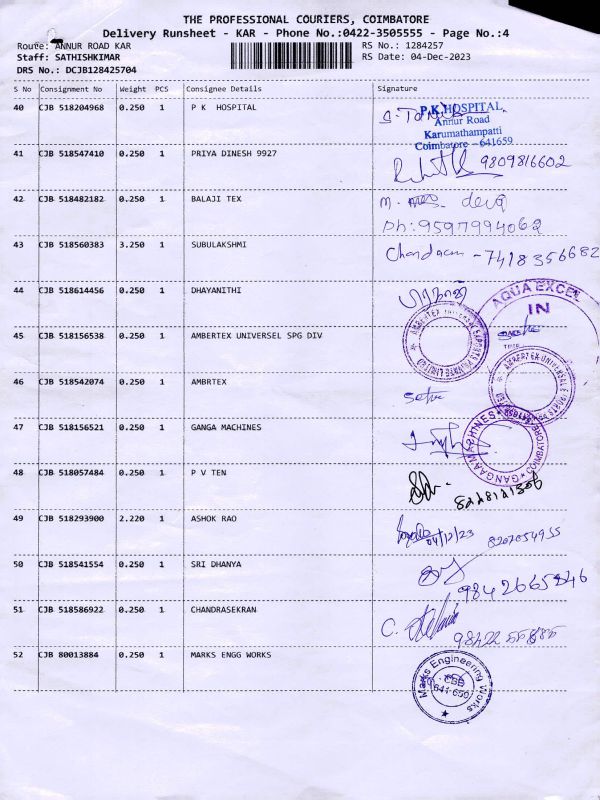 THE PROFESSIONAL COURIERS, COIMBATORE
Delivery Runsheet - KAR - Phone No.:0422-3505555 - Page No.:4
Route: ANNUR ROAD KAR
RS No.: 1284257
Staff: SATHISHKIMAR
RS Date: 04-Dec-2023
DRS No.: DCJB128425704
S No Consignment No Weight PCS Consignee Details Signature
40 CJB 518204968 0.250 1 P K HOSPITAL
P.K.HOSPITAL
Annur Road
Karumathampatti
Coimbatore - 641659
41 CJB 518547410 0.250 1 PRIYA DINESH 9927 9809816602
42 CJB 518482182 0.250 1 BALAJI TEX M. devq
Ph: 9597994062
43 CJB 518560383 3.250 1 SUBULAKSHMI - 7418356682
44 CJB 518614456 0.250 1 DHAYANITHI
AQUA EXCEL
IN
45 CJB 518156538 0.250 1 AMBERTEX UNIVERSEL SPG DIV
46 CJB 518542074 0.250 1 AMBRTEX
47 CJB 518156521 0.250 1 GANGA MACHINES
GANGAA MACHINES
COIMBATORE
48 CJB 518057484 0.250 1 P V TEN
49 CJB 518293900 2.220 1 ASHOK RAO 04/12/23
50 CJB 518541554 0.250 1 SRI DHANYA 9842665846
51 CJB 518586922 0.250 1 CHANDRASEKRAN C.
52 CJB 80013884 0.250 1 MARKS ENGG WORKS
Marks Engineering Works